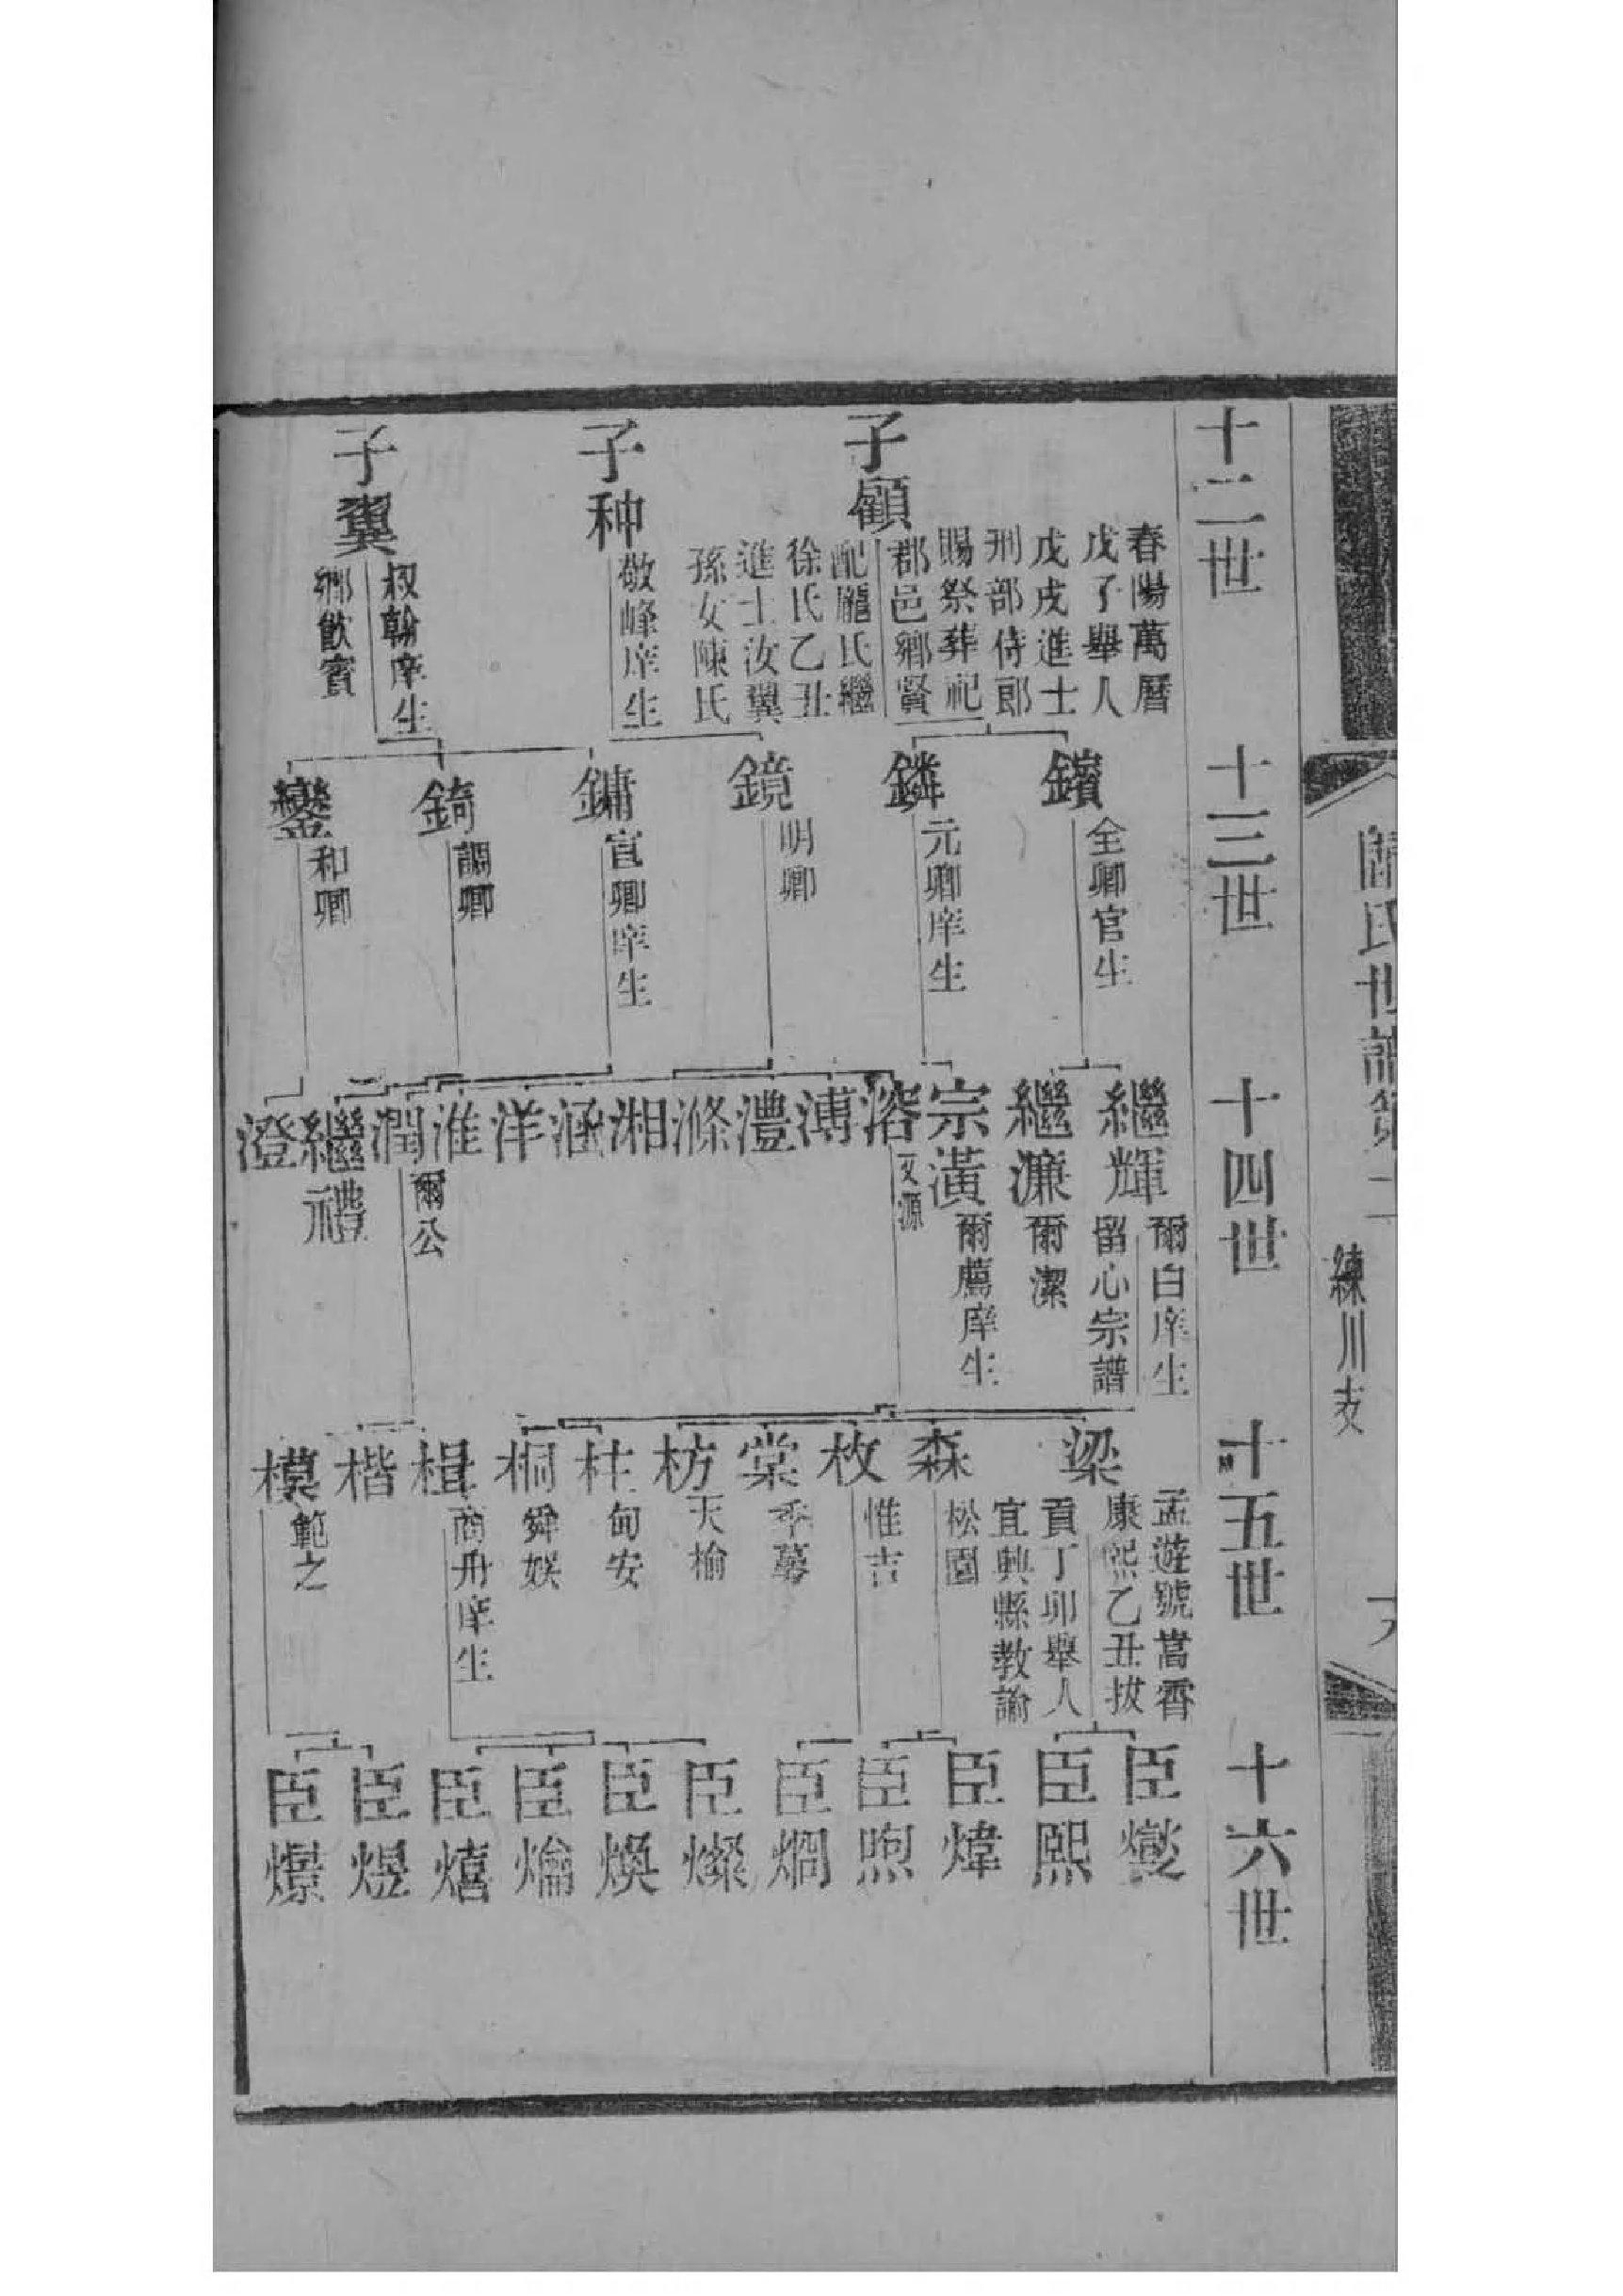 氏世譜第二
練川支
十二世
子顧
春陽萬曆
戊子舉人
戊戌進士
刑部侍郎
賜祭葬祀
郡邑鄉賢
配龐氏繼
徐氏乙丑
進士汝翼
孫女陳氏
子种
敬峰庠生
子翼
叔翰庠生
鄉飲賓
十三世
鑌
全卿官生
鏻
元卿庠生
鏡
明卿
鏞
宣卿庠生
錡
調卿
鑾
和卿
十四世
繼輝
爾白庠生
留心宗譜
繼濂
爾潔
宗潢
爾薦庠生
溶
文源
溥
澧
滌
湘
涵
洋
淮
潤
爾公
繼禮
澄
十五世
梁
孟遊號嵩霄
康熙乙丑拔
貢丁卯舉人
宜興縣教諭
森
松園
枚
惟吉
棠
季蕚
枋
天榆
柱
甸安
桐
舜娛
楫
商舟庠生
楷
模
範之
十六世
臣燮
臣熙
臣煒
臣煦
臣燗
臣燦
臣煥
臣爚
臣熺
臣煜
臣燝